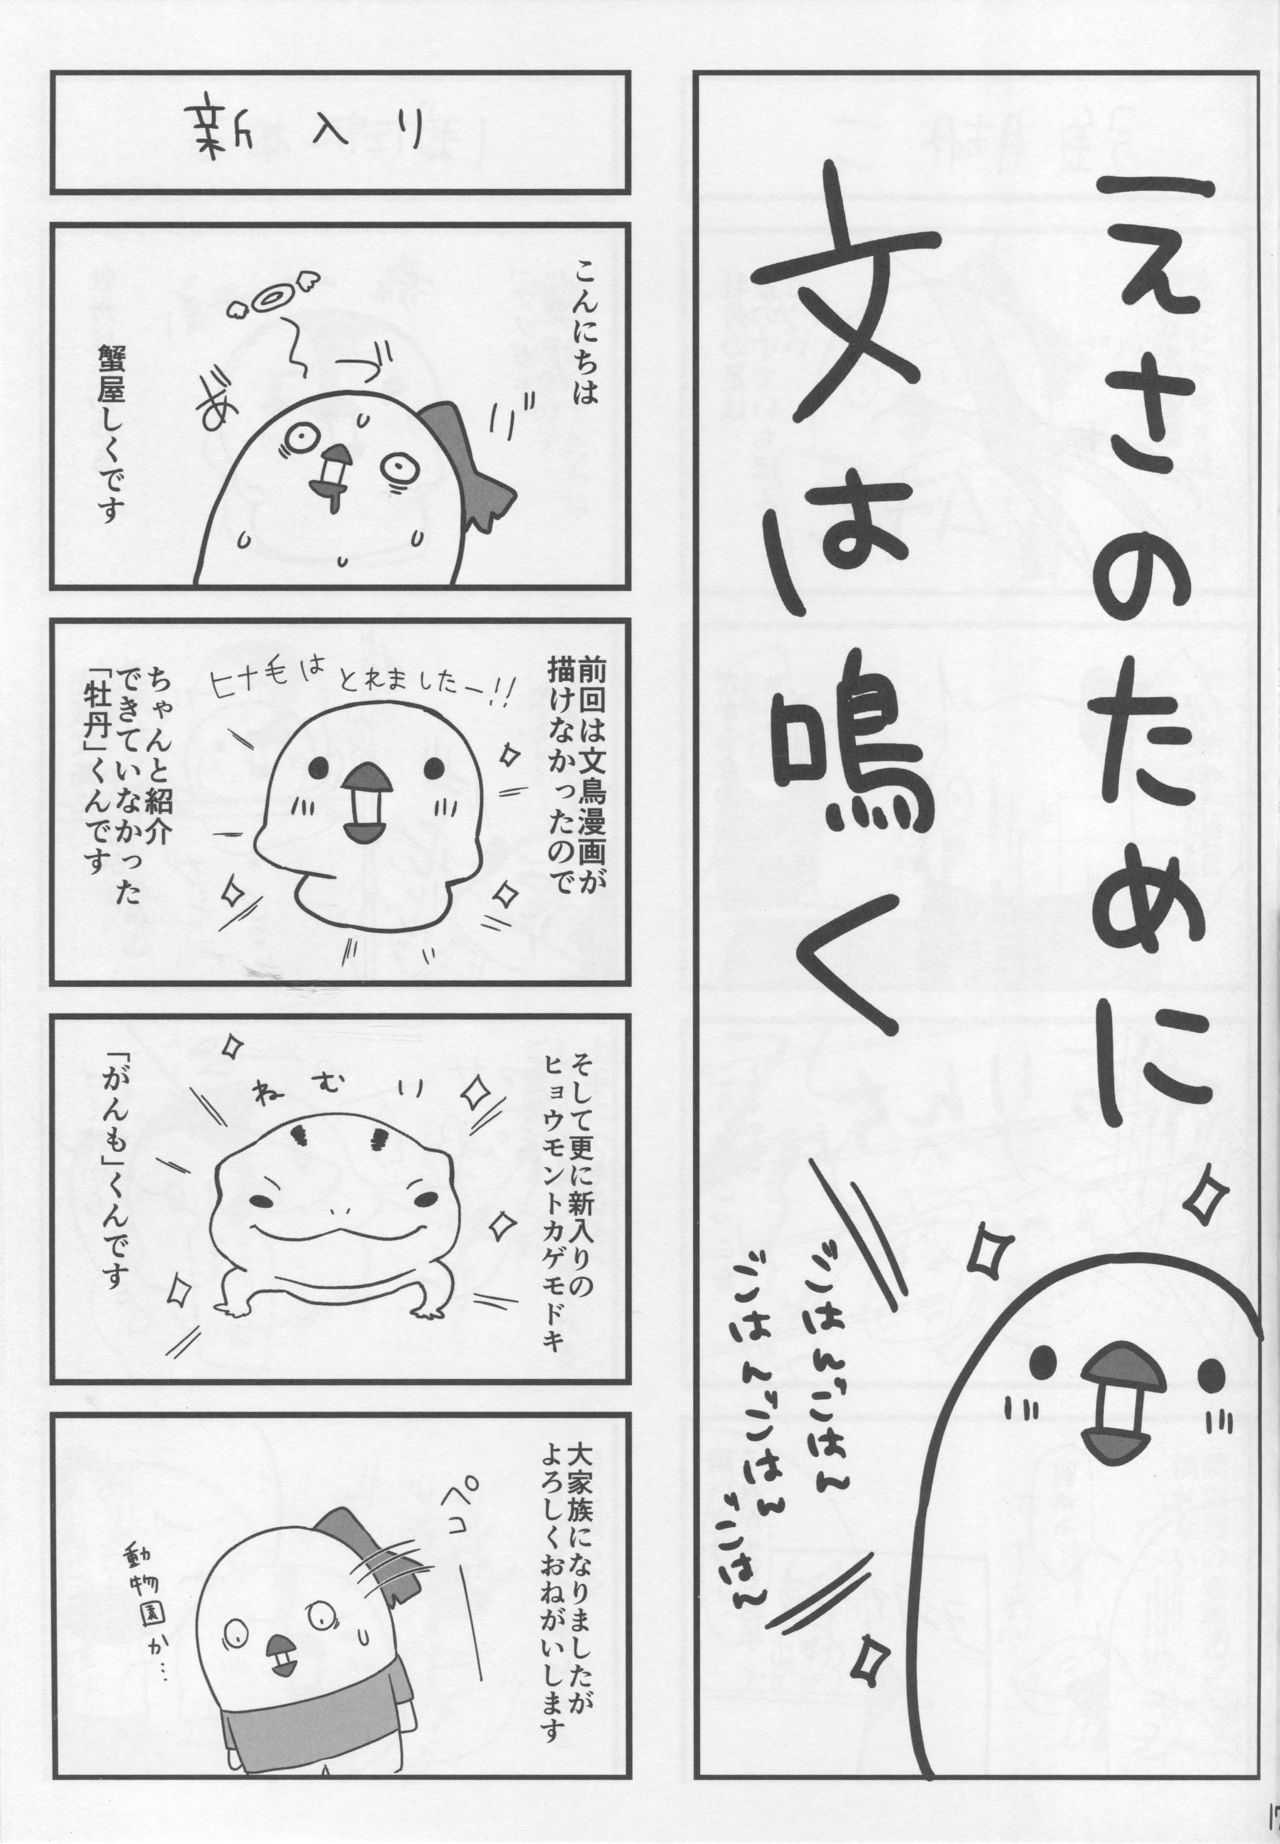 えさのために
文は鳴く
ごはんごはん
ごはんごはん
ごはん
新入り
こんにちは
蟹屋しくです
前回は文鳥漫画が
描けなかったので
ヒナ毛はとれましたー!!
ちゃんと紹介
できていなかった
「牡丹」くんです
そして更に新入りの
ヒョウモントカゲモドキ
ねむり
「がんも」くんです
大家族になりましたが
よろしくおねがいします
ペコ
動物園か…
17